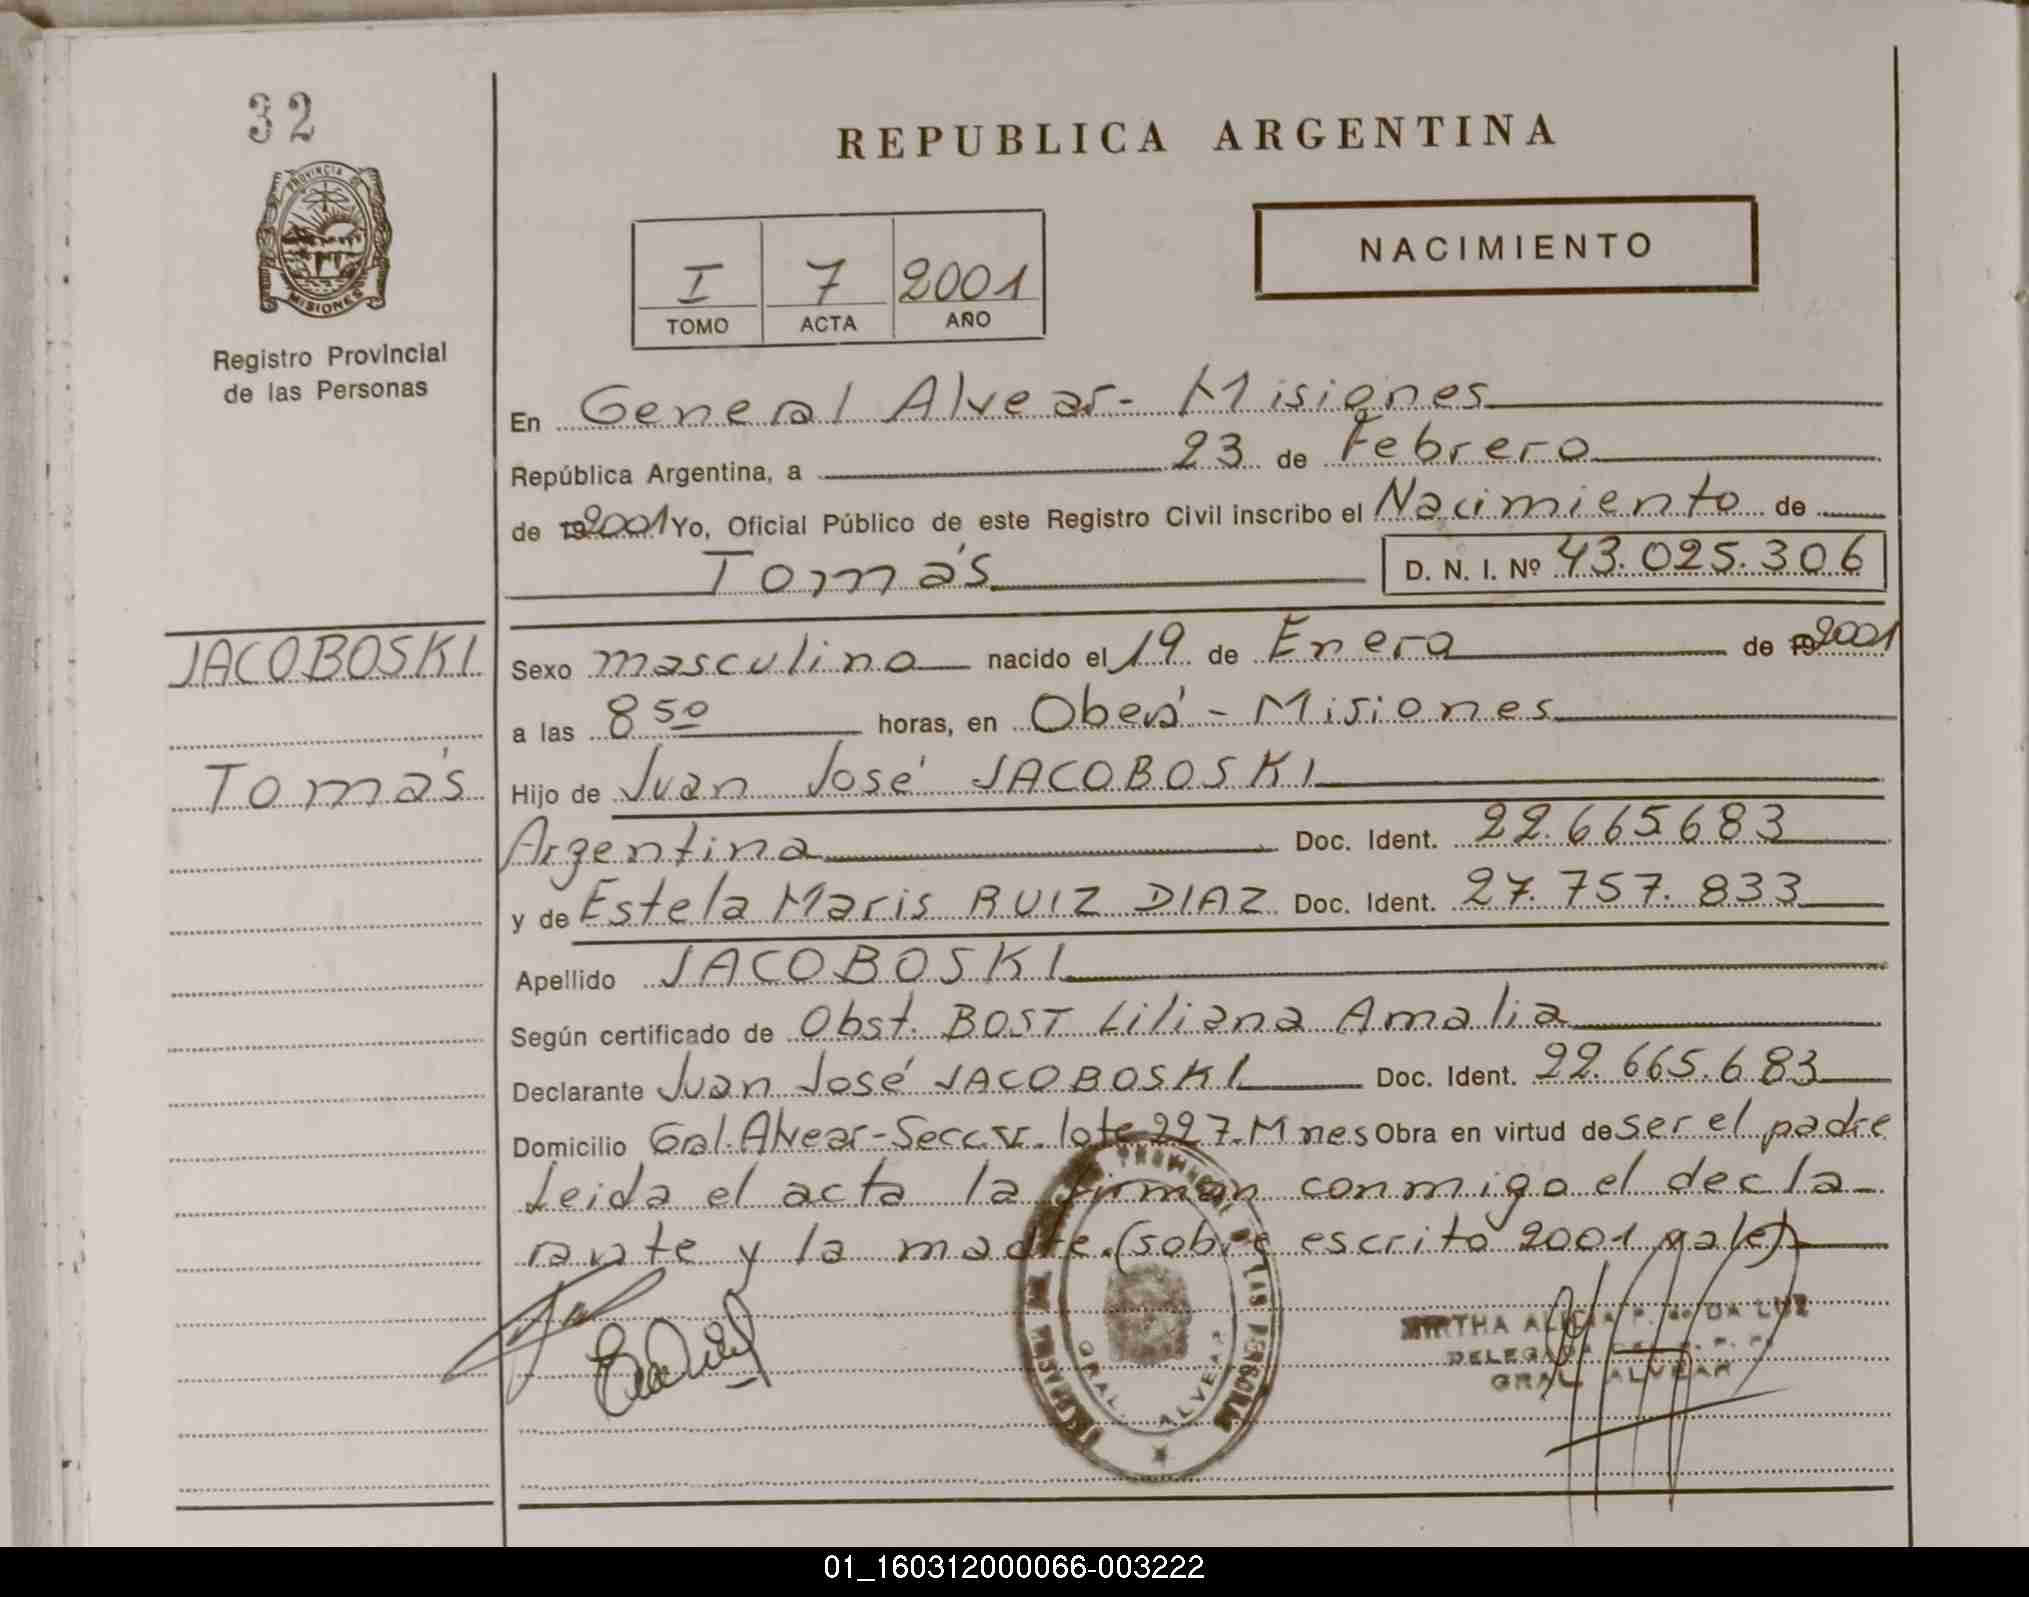 32
PROVINCIA DE
MISIONES
Registro Provincial
de las Personas
REPUBLICA ARGENTINA
NACIMIENTO
I 7 2001
TOMO ACTA AÑO
En General Alvear - Misiones
República Argentina, a 23 de Febrero
de 192001 Yo, Oficial Público de este Registro Civil inscribo el Nacimiento de
Tomás D. N. I. Nº 43.025.306
JACOBOSKI
Tomás
Sexo masculino nacido el 19 de Enero de 192001
a las 8 50 horas, en Oberá - Misiones
Hijo de Juan José JACOBOSKI
Argentina Doc. Ident. 22.665.683
y de Estela Maris RUIZ DIAZ Doc. Ident. 27.757.833
Apellido JACOBOSKI
Según certificado de Obst. BOST Liliana Amalia
Declarante Juan José JACOBOSKI Doc. Ident. 22.665.683
Domicilio Gral. Alvear - Secc. lote 227 - Mnes Obra en virtud de ser el padre
Leida el acta la firman conmigo el decla-
rante y la madre. (sobre escrito 2001 vale)
DE LAS PERSONAS
GRAL. ALVEAR
MIRTHA ALICIA P. de DA LUZ
DELEGADA
GRAL. ALVEAR
01_160312000066-003222